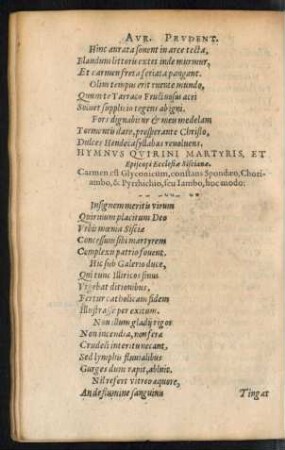 AVR. PRVDENT.
Hinc aurata sonent in arce tecta,
Blandum littoris extet inde murmur,
Et carmen freta feriata pangant.
Olim tempus erit ruente mundo,
Quum te Tarraco Fructuosus acri
Soluet supplicio tegens ab igni.
Fors dignabitur & meis medelam
Tormentis dare, prosperante Christo,
Dulces Hendecasyllabos reuoluens.
HYMNVS QVIRINI MARTYRIS, ET
Episcopi Ecclesiæ Siscianæ.
Carmen est Glyconicum, constans Spondæo, Chori-
ambo, & Pyrrhichio, seu Iambo, hoc modo:
Insignem meriti virum
Quirinum placitum Deo
Vrbis mœnia Sisciæ
Concessum sibi martyrem
Complexu patrio fouent.
Hic sub Galerio duce,
Qui tunc Illiricos sinus
Vrgebat ditionibus,
Fertur catholicam fidem
Illustrasse per exitum.
Non illum gladij rigor
Non incendia, non feræ
Crudeli interitu necant,
Sed lymphis fluuialibus
Gurges dum rapit, abluit.
Nil refert vitreo æquore,
An de flumine sanguinis
Tingat